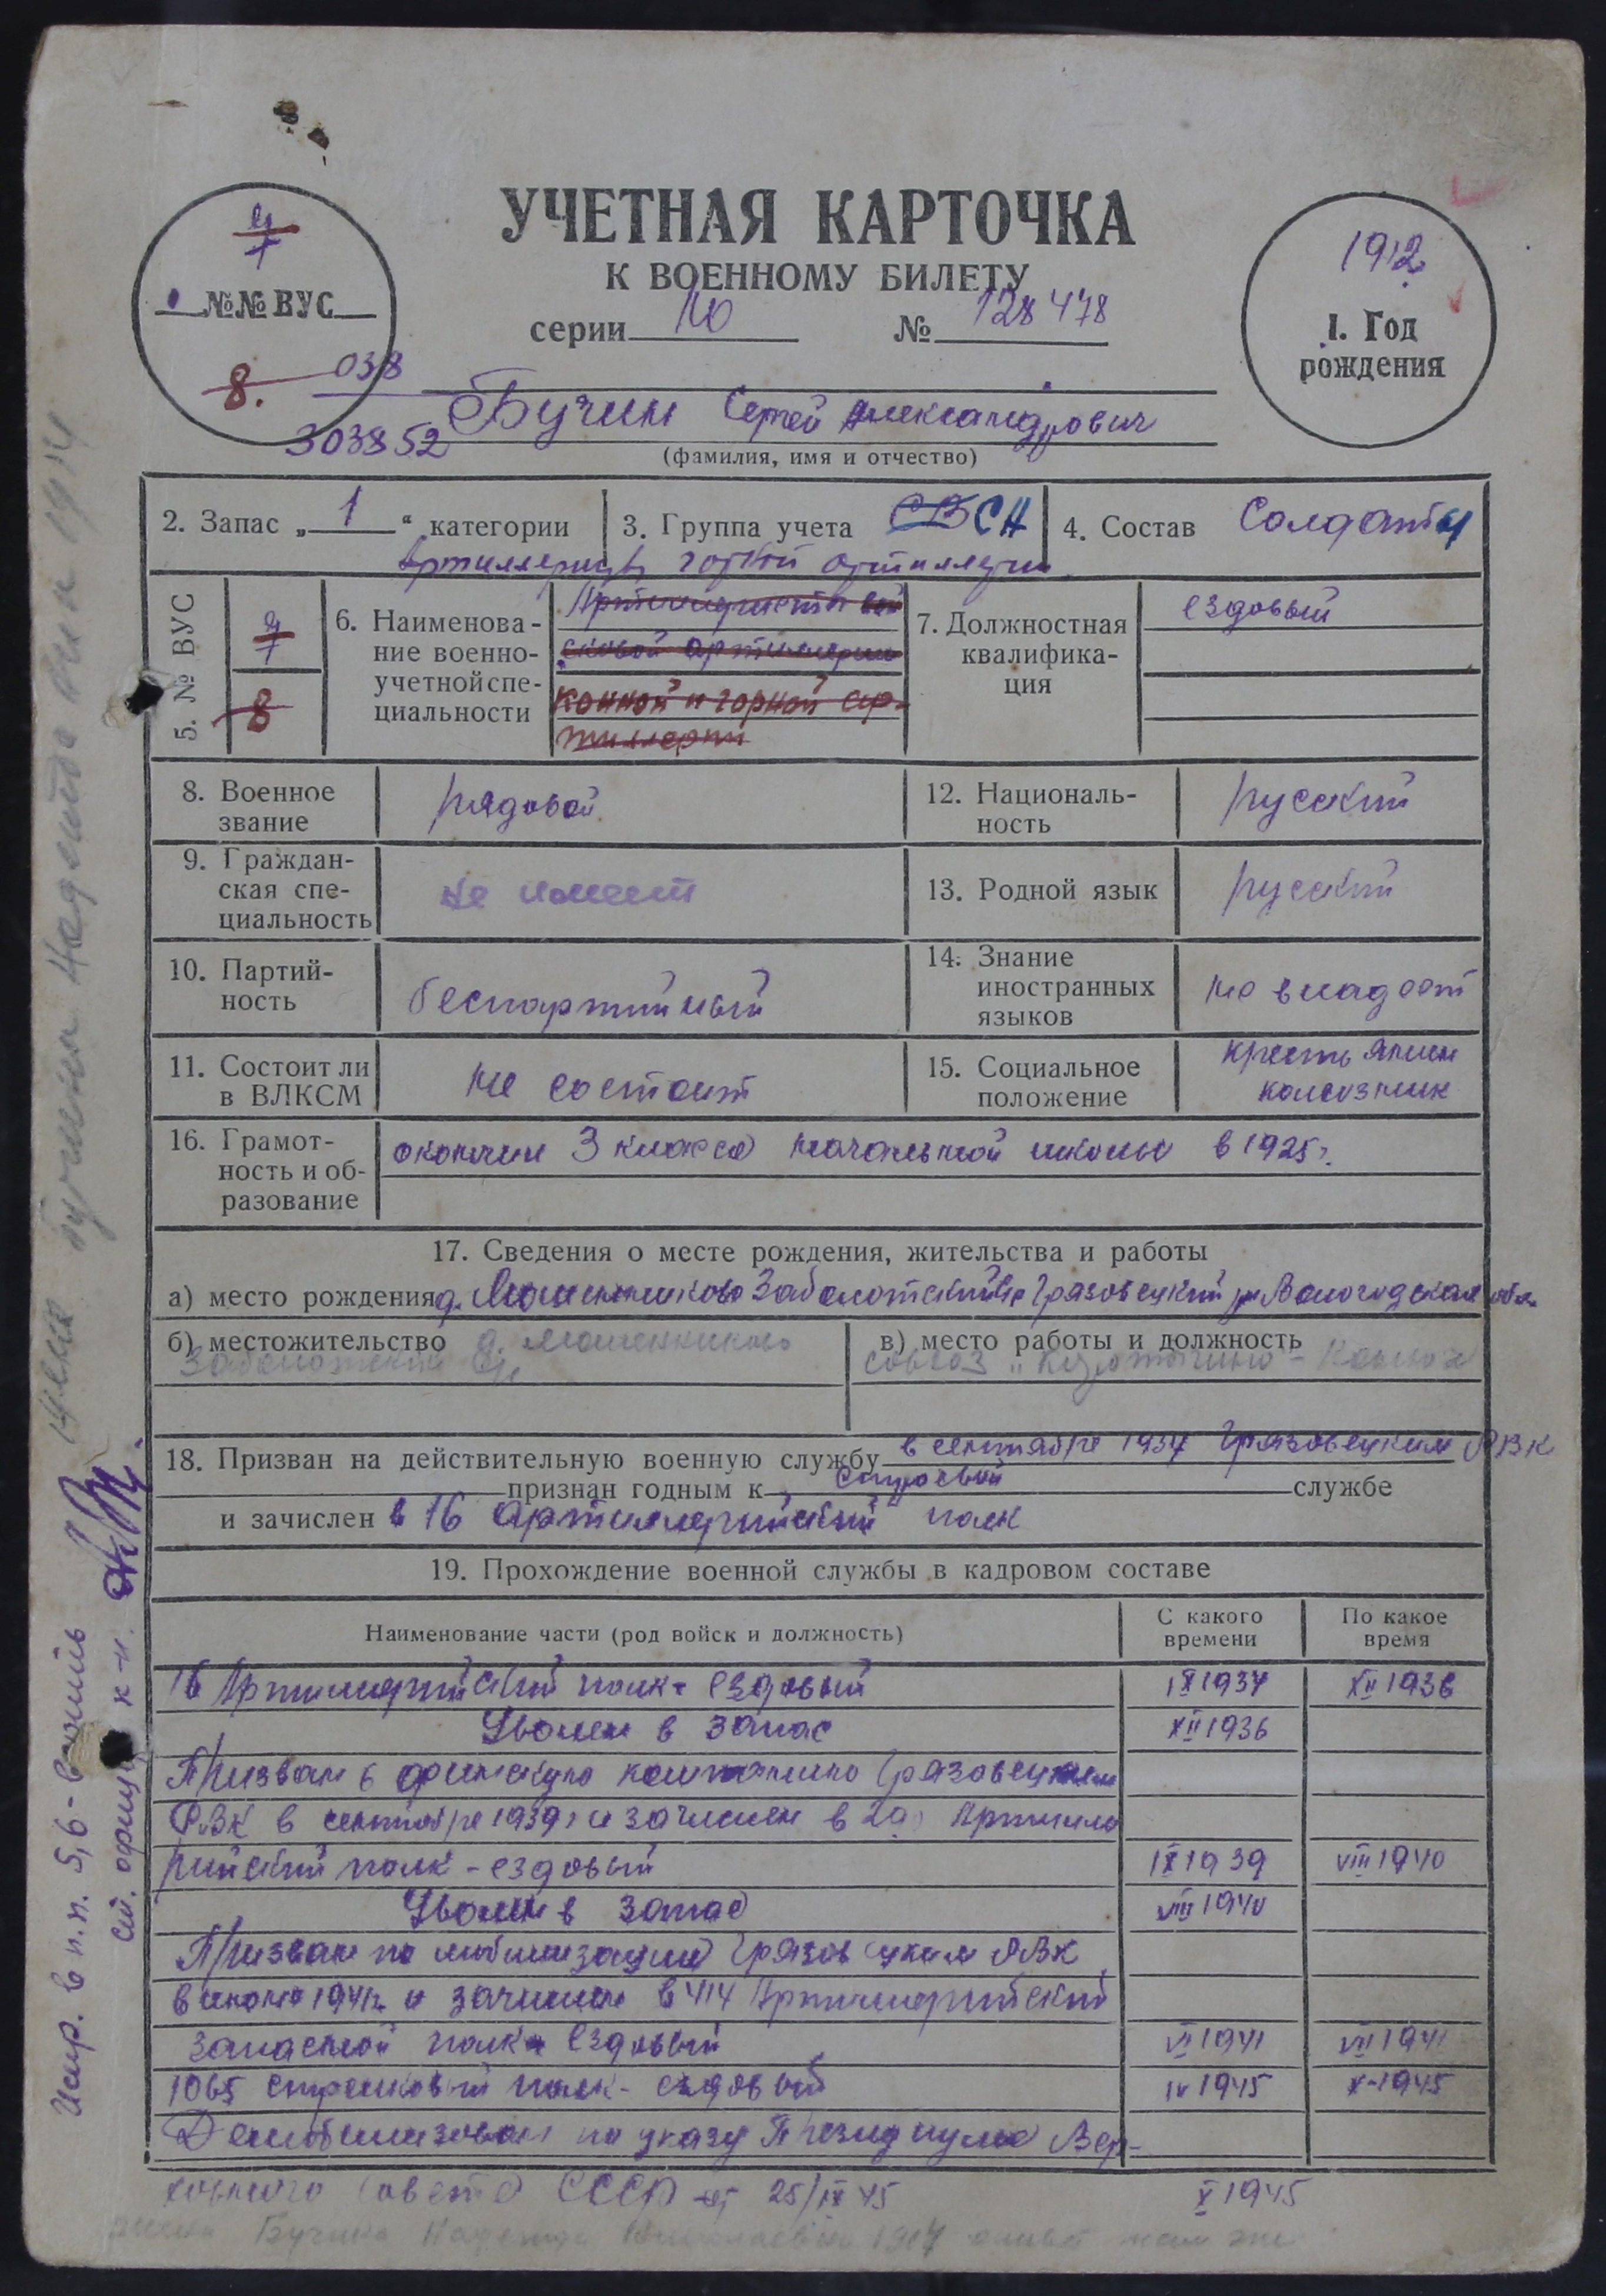 УЧЕТНАЯ КАРТОЧКА
К ВОЕННОМУ БИЛЕТУ
серии НО № 128478
4/7
№№ ВУС
8. 038
303852
1912
1. Год
рождения
Бучин Сергей Александрович
(фамилия, имя и отчество)
2. Запас „ 1 “ категории
3. Группа учета СВ СА
4. Состав Солдаты
Артиллеристы горной артиллерии
5. № ВУС
8
6. Наименова-
ние военно-
учетной спе-
циальности
Артиллеристы вой
сковой артиллерии
конной и горной ар-
тиллерии
7. Должностная
квалифика-
ция
ездовый
8. Военное
звание
рядовой
12. Националь-
ность
русский
9. Граждан-
ская спе-
циальность
не имеет
13. Родной язык
русский
10. Партий-
ность
беспартийный
14. Знание
иностранных
языков
не владеет
11. Состоит ли
в ВЛКСМ
не состоит
15. Социальное
положение
крестьянин
колхозник
16. Грамот-
ность и об-
разование
окончил 3 класса начальной школы в 1925г.
17. Сведения о месте рождения, жительства и работы
а) место рождения д. Мошенниково Заболотский Грязовецкий Вологодская обл.
б) местожительство д. Мошенниково
Заболотский
в) место работы и должность
совхоз
18. Призван на действительную военную службу в сентябре 1934 Грязовецким РВК
признан годным к строевой службе
и зачислен в 16 Артиллерийский полк
19. Прохождение военной службы в кадровом составе
Наименование части (род войск и должность)
С какого
времени
По какое
время
16 Артиллерийский полк - ездовый IX 1934 XII 1936
Уволен в запас XII 1936
Призван в финскую компанию Грязовецким
РВК в сентябре 1939г и зачислен в 29 Артилле
рийский полк - ездовый IX 1939 VIII 1940
Уволен в запас VIII 1940
Призван по мобилизации Грязовецким РВК
в июне 1941г. и зачислен в 414 Артиллерийский
запасной полк - ездовый VI 1941 VII 1941
1065 стрелковый полк - ездовый IV 1945 X-1945
Демобилизован по указу Президиума Вер-
ховного Совета СССР от 25/IX 45 X 1945
жена Бучина Надежда Николаевна 1914
Испр. в п.п. 5, 6 - верить
ст. офицер к-н.
жена Бучина Надежда 1914